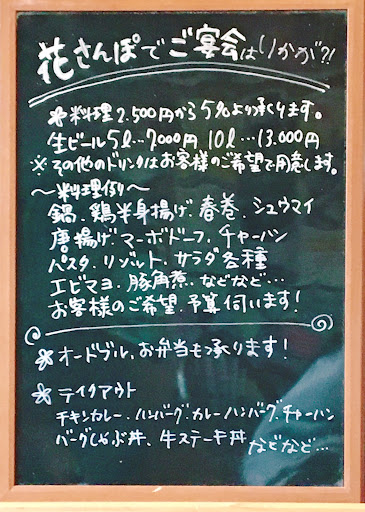 花さんぽでご宴会はいかが?!
料理2.500円から5名より承ります。
生ビール5ℓ…7000円 10ℓ…13.000円
※その他のドリンクはお客様のご希望で用意します。
〜料理例〜
鍋、鶏半身揚げ.春巻.シュウマイ
唐揚げ.マーボドーフ.チャーハン
パスタ.リゾット.サラダ各種
エビマヨ.豚角煮.などなど…
お客様のご希望.予算伺います!
オードブル,お弁当も承ります!
テイクアウト
チキンカレー.ハンバーグ.カレーハンバーグ.チャーハン
バーグしゃぶ丼、牛ステーキ丼 などなど…